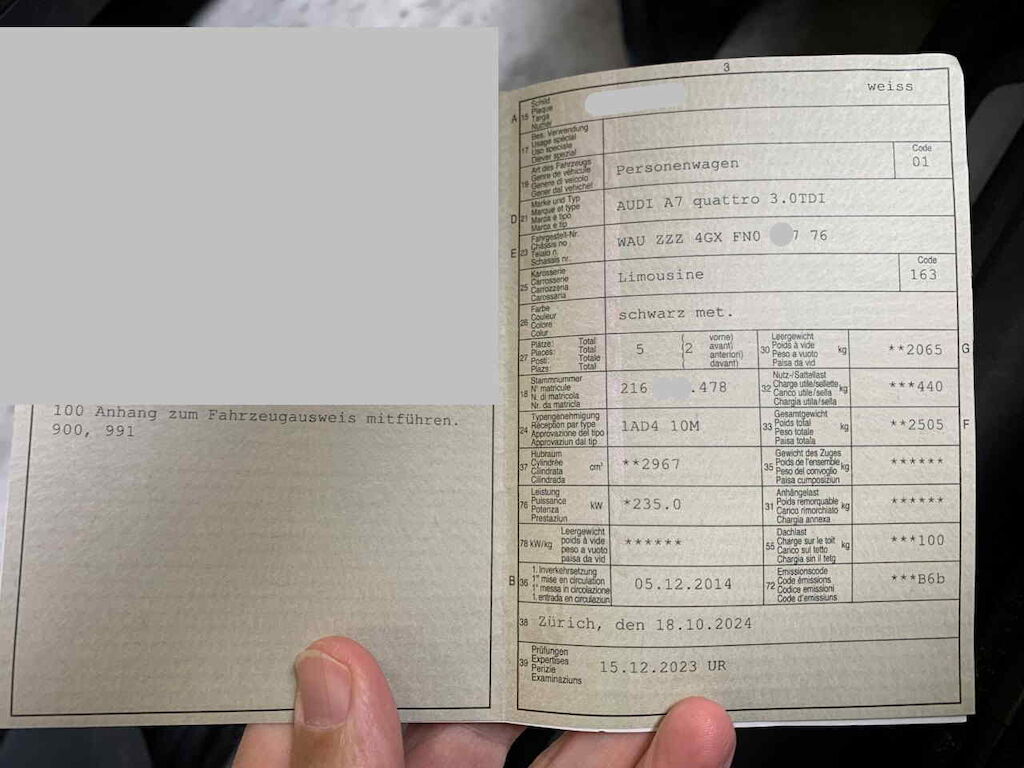 100 Anhang zum Fahrzeugausweis mitführen.
900, 991
3
A 15 Schild Plaque Targa Numer weiss
17 Bes. Verwendung Usage spécial Uso speciale Diever spezial
19 Art des Fahrzeugs Genre de véhicule Genere di veicolo Gener dal vehichel Personenwagen Code 01
D 21 Marke und Typ Marque et type Marca e tipo Marca e tip AUDI A7 quattro 3.0TDI
E 23 Fahrgestell-Nr. Châssis no Telaio n. Schassis nr. WAU ZZZ 4GX FN0 7 76
25 Karosserie Carrosserie Carrozzeria Carossaria Limousine Code 163
26 Farbe Couleur Colore Colur schwarz met.
27 Plätze: Total Places: Total Posti: Totale Plazs: Total 5 (2 vorne) avant) anteriori) davant) 30 Leergewicht Poids à vide Peso a vuoto Paisa da vid kg **2065 G
18 Stammnummer N° matricule N. di matricola Nr. da matricla 216 .478 32 Nutz-/Sattellast Charge utile/sellette Carico utile/sella Chargia utila/sella kg ***440
24 Typengenehmigung Réception par type Approvazione del tipo Approvaziun dal tip 1AD4 10M 33 Gesamtgewicht Poids total Peso totale Paisa totala kg **2505 F
37 Hubraum Cylindrée Cilindrata Cilindrada cm³ **2967 35 Gewicht des Zuges Poids de l'ensemble Peso del convoglio Paisa cumposiziun kg ******
76 Leistung Puissance Potenza Prestaziun kW *235.0 31 Anhängelast Poids remorquable Carico rimorchiato Chargia annexa kg ******
78 kW/kg Leergewicht poids à vide peso a vuoto paisa da vid ****** 55 Dachlast Charge sur le toit Carico sul tetto Chargia sin il tetg kg ***100
B 36 1. Inverkehrsetzung 1re mise en circulation 1a messa in circolazione 1. entrada en circulaziun 05.12.2014 72 Emissionscode Code émissions Codice emissioni Code d'emissiuns ***B6b
38 Zürich, den 18.10.2024
39 Prüfungen Expertises Perizie Examinaziuns 15.12.2023 UR